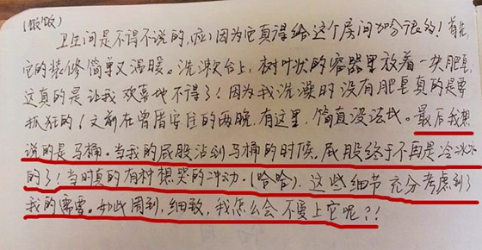 (嗷嗷)
卫生间是不得不说的,啦)因为它真得给这个房间加分很多!首先
它的装修简单又温暖。洗漱台上,树叶状的容器里放着一块肥皂,
这真的是让我欢喜地不得了!因为我洗澡时没有肥皂真的是要
抓狂的!之前在曾厝安住的两晚,有这里,简直没法比。最后我想
说的是马桶。当我的屁股沾到马桶的时候,屁股终于不再是冷冰冰
的了!当时真的有种想哭的冲动。(哈哈)这些细节充分考虑到了
我的需要。如此周到,细致,我怎么会不爱上它呢?!